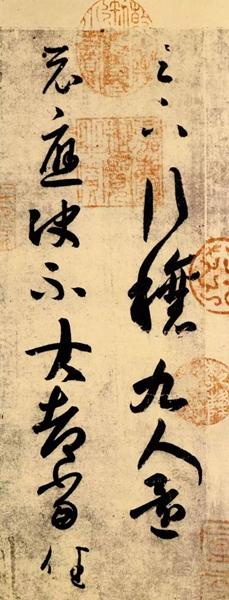 足下行穰九人還
示應決不大都當佳